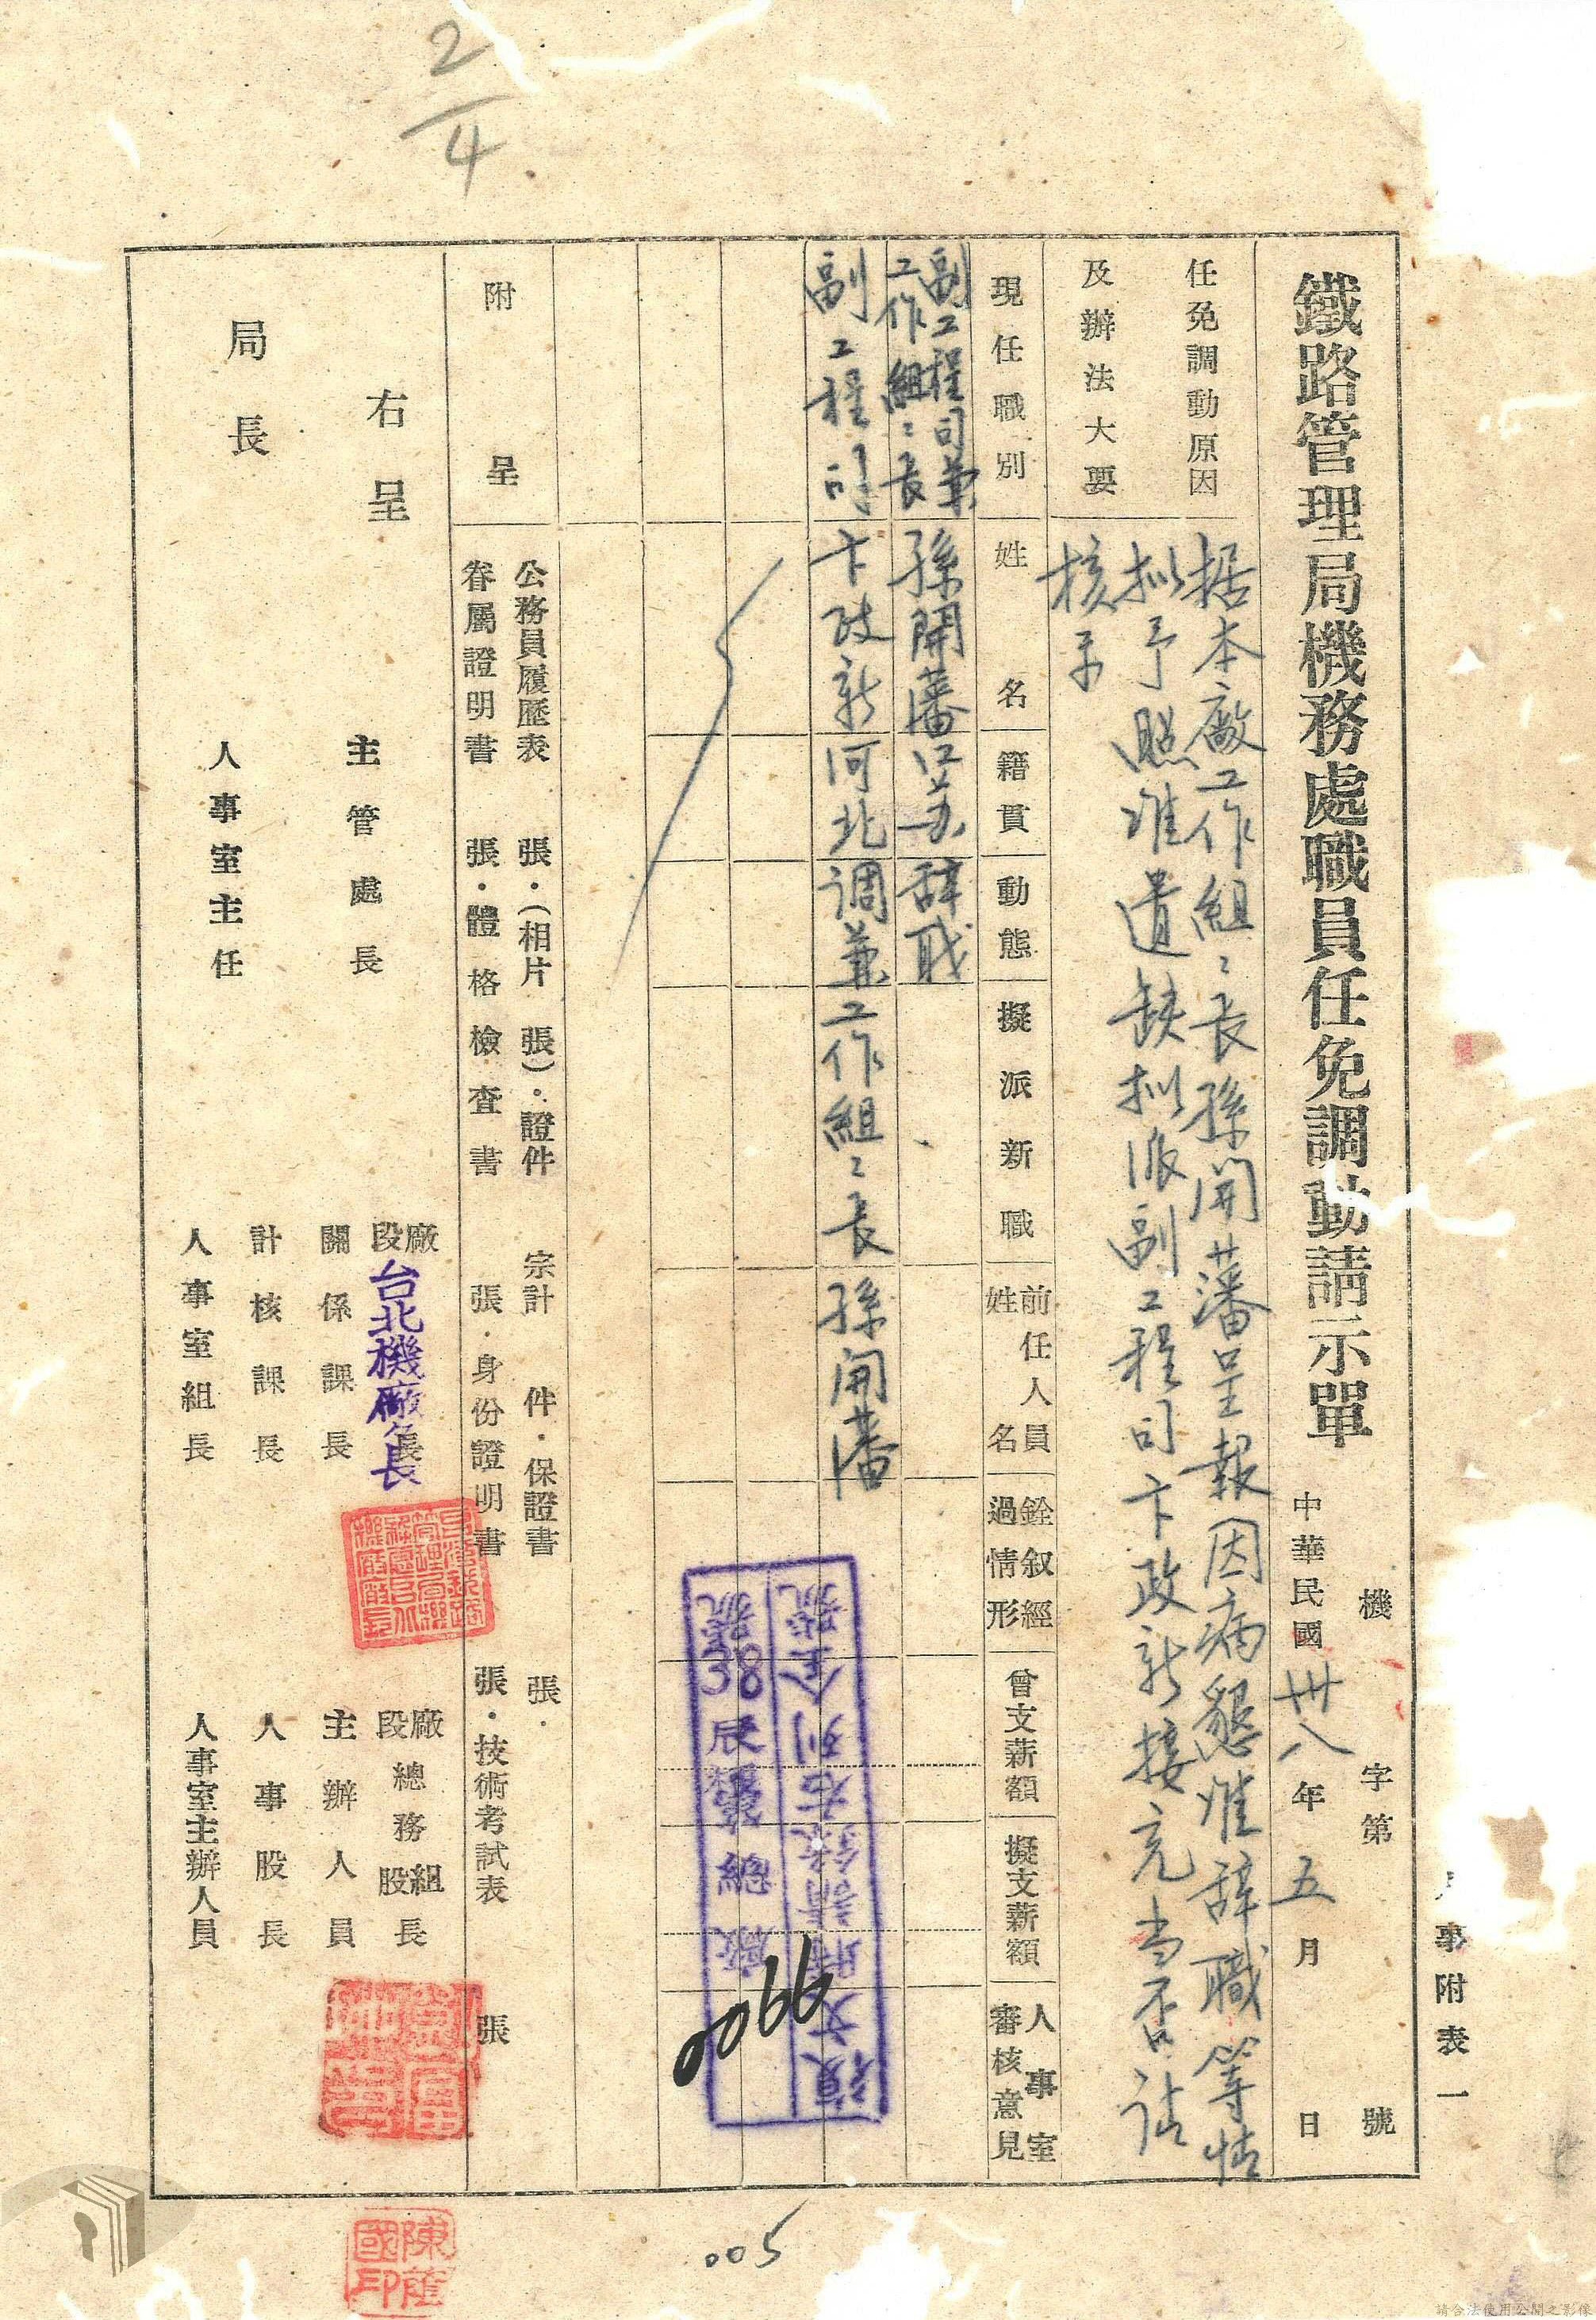 事附表一
鐵路管理局機務處職員任免調動請示單
機 字第 號
中華民國卅八年五月 日
任免調動原因
及辦法大要
据本廠工作組〻長孫開藩呈報因病懇准辞職等情
拟予照准遺缺拟派副工程司卞政新接充当否请
核示
現任職別
姓名
籍貫
動態
擬派新職
前任人員
姓名
銓叙經
過情形
曾支薪額
擬支薪額
人事室
審核意見
副工程司兼
工作組〻長
孫開藩
江苏
辞职
副工程司
卞政新
河北
调兼工作組〻長
孫開藩
領文時請錄右列全號
廠總第 38 號
0066
附呈
公務員履歷表 張·(相片 張)·證件 宗計 件·保證書 張·
眷屬證明書 張·體格檢查書 張·身份證明書 張·技術考試表 張
右呈
主管處長
廠
段長
台北機廠長
廠總務組
段 股長
關係課長
主辦人員
局長
計核課長
人事股長
人事室主任
人事室組長
人事室主辦人員
2/4
005
請合法使用公開之影像